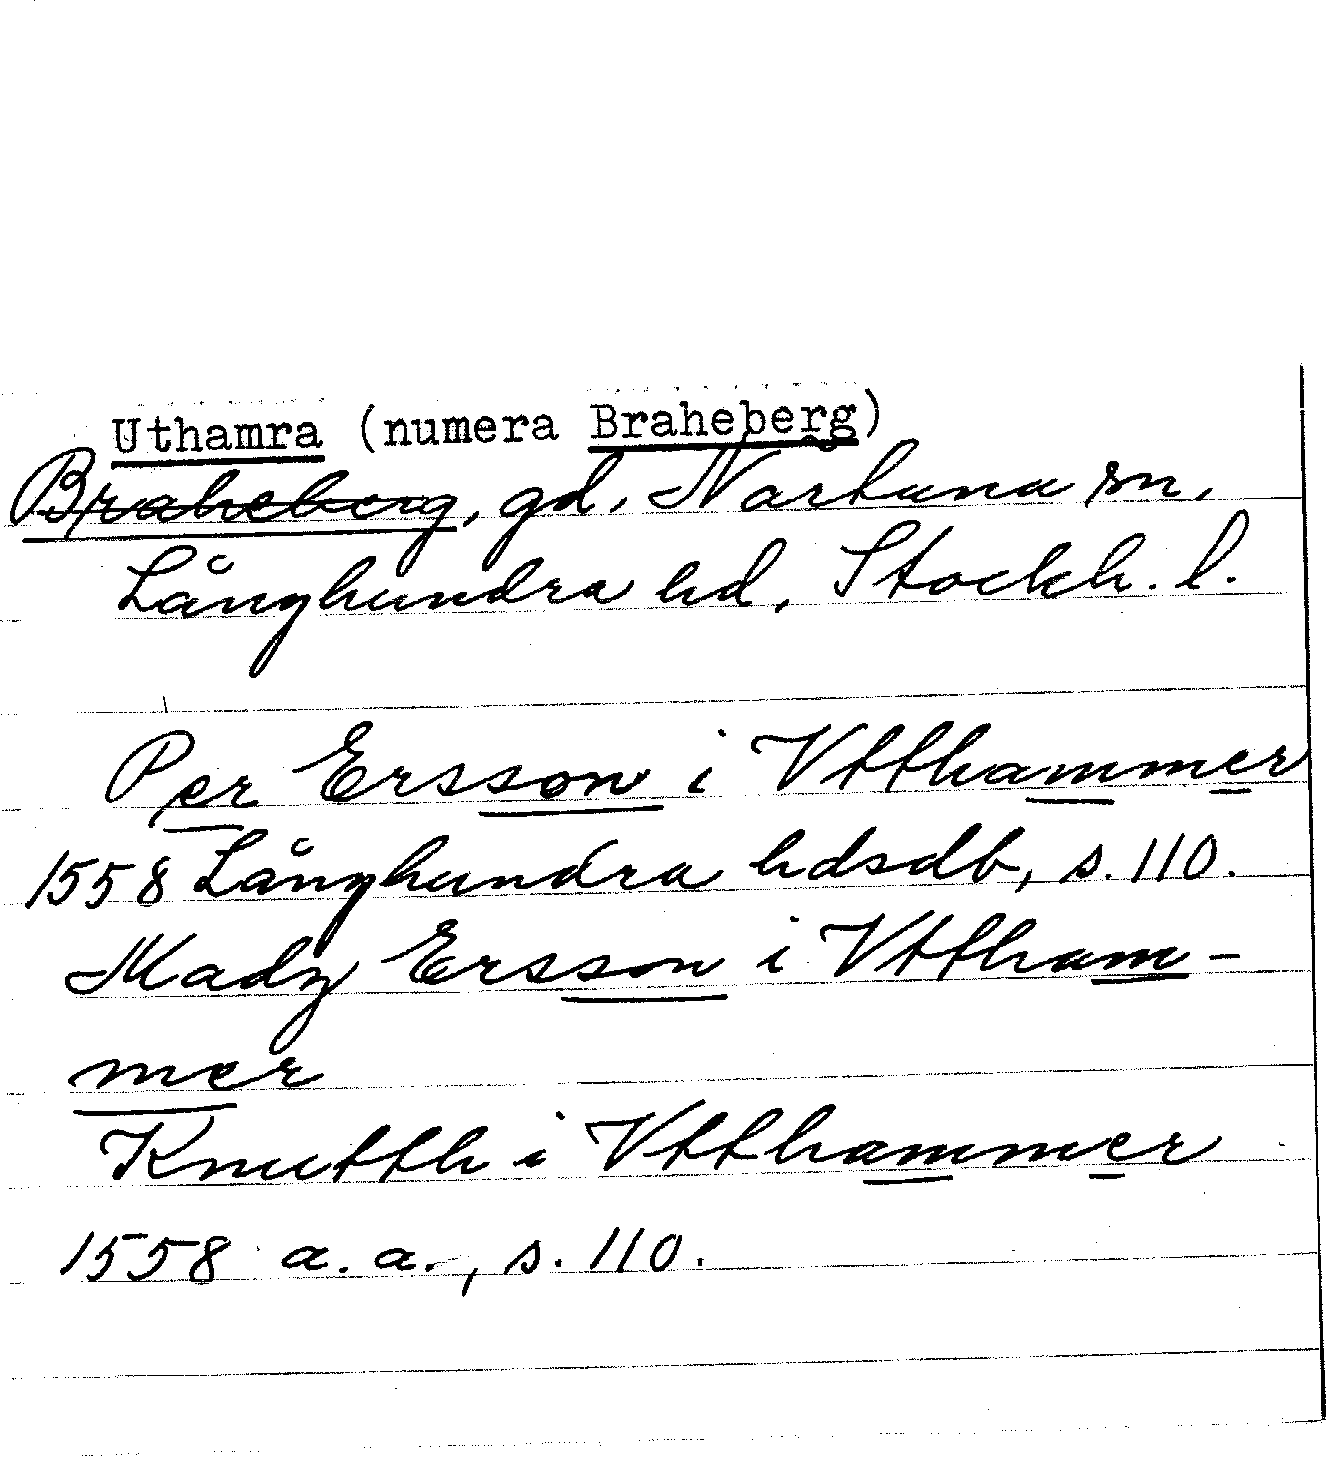 Uthamra (numera Braheberg)
Braheberg, gd, Närtuna sn,
Långhundra hd, Stockh. l.
Per Ersson i Vtthammer
1558 Långhundra hdsdb, s. 110.
Madz Ersson i Vttham-
mer
Knutth i Vtthammer
1558 a. a., s. 110.